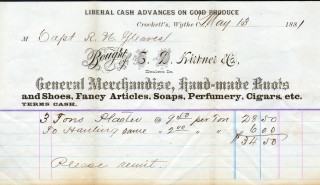 LIBERAL CASH ADVANCES ON GOLD PRODUCE
Crockett's, Wythe Co. May 13 1881
Capt R. H. Gleaves
Bought of S. D. Kirtner & Co.,
Dealers In
General Merchandise, Hand-made Boots
and Shoes, Fancy Articles, Soaps, Perfumery, Cigars, etc.
TERMS CASH.
3 Tons Plaster @ 9.50 per Ton 28 50
Do Hauling same " 2.00 " " 6 00
$34 50
Please remit.